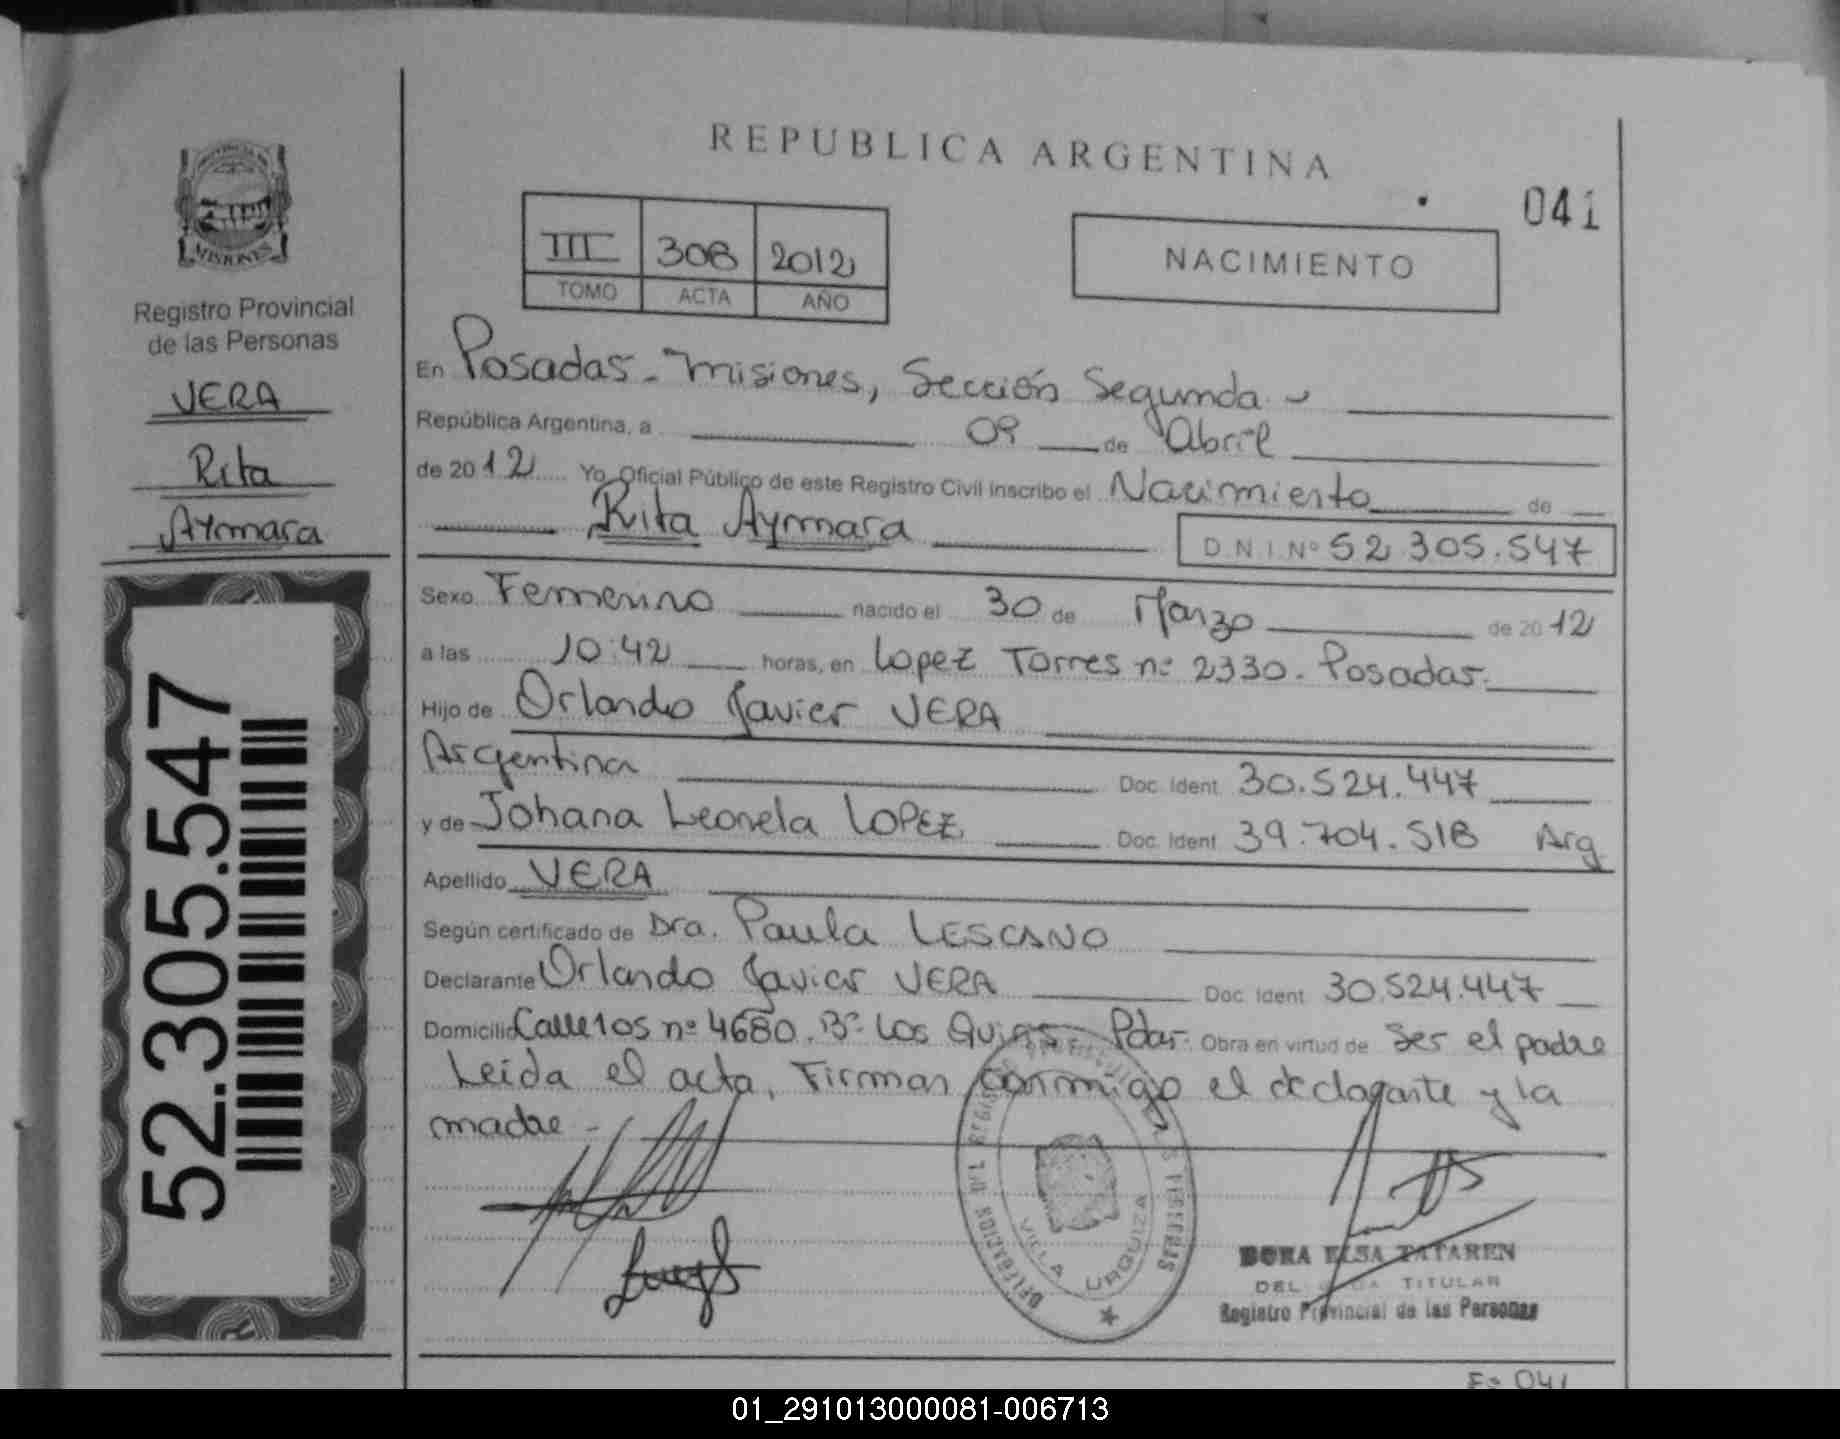 REPUBLICA ARGENTINA
041
III 308 2012
TOMO ACTA AÑO
NACIMIENTO
PROVINCIA DE
MISIONES
Registro Provincial
de las Personas
VERA
Rita
Aymara
52.305.547
En Posadas - Misiones, Sección Segunda -
República Argentina, a 09 de Abril
de 2012 Yo, Oficial Público de este Registro Civil inscribo el Nacimiento de
Rita Aymara D.N.I.Nº 52.305.547
Sexo Femenino nacido el 30 de Marzo de 2012
a las 10:42 horas, en Lopez Torres nº 2330. Posadas.
Hijo de Orlando Javier VERA
Argentina Doc. Ident 30.524.447
y de Johana Leonela LOPEZ Doc. Ident 39.704.518 Arg
Apellido VERA
Según certificado de Dra. Paula LESCANO
Declarante Orlando Javier VERA Doc. Ident 30.524.447
Domicilio Calle 105 nº 4680. Bº Los Pdas. Obra en virtud de Ser el padre
Leida el acta, Firman conmigo el declarante y la
madre -
DELEGACION DEL REGISTRO PROVINCIAL DE LAS PERSONAS
VILLA URQUIZA
DORA ELSA TATAREN
DELEGADA TITULAR
Registro Provincial de las Personas
Fº 041
01_291013000081-006713